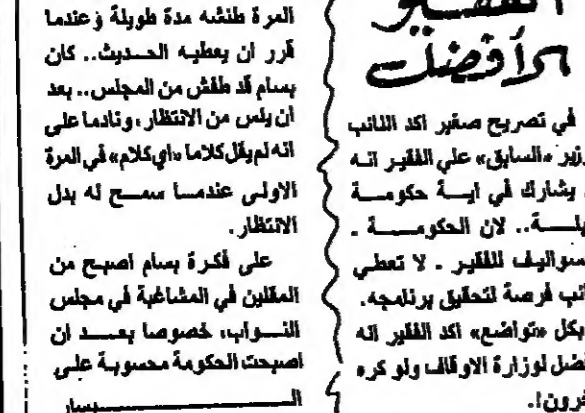 الفقير
الأفضل
في تصريح صغير اكد النائب
وزير «السابق» علي الفقير انه
يشارك في ايـة حكومـة
لان الحكومـــة .
سواليف للفقير . لا تعطي
فرصة لتحقيق برنامجه.
بكل «تواضع» اكد الفقير انه
لوزارة الاوقاف ولو كره
المرة طنشه مدة طويلة وعندما
قرر ان يعطيه الحـديث.. كان
بسام قد طفش من المجلس.. بعد
ان يئس من الانتظار، ونادما على
انه لم يقل كلاما «اي كلام» في المرة
الاولى عندمـا سمـح له بدل
الانتظار.
على فكرة بسام اصبح من
المقلين في المشاغبة في مجلس
النـــواب، خصوصا بعـــد ان
اصبحت الحكومة محسوبة على
اليسار